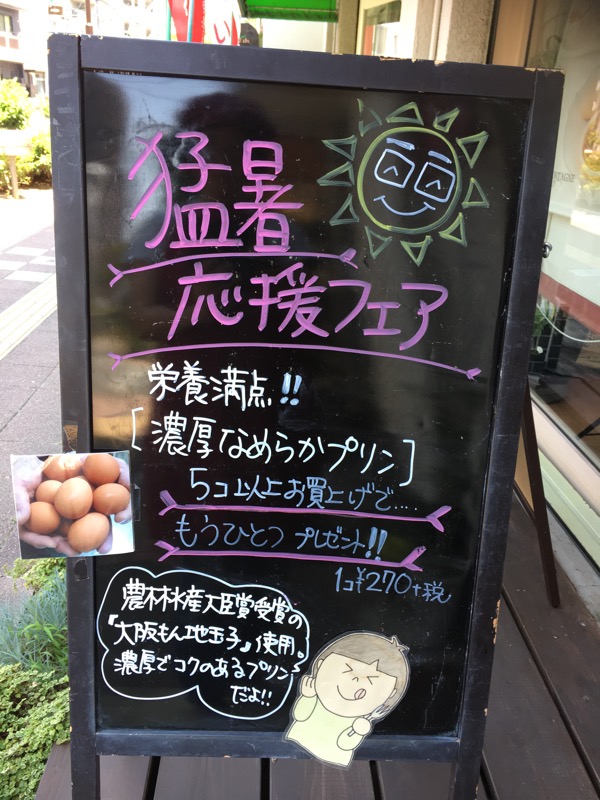 猛暑
応援フェア
栄養満点!!
[濃厚なめらかプリン]
5コ以上お買上げで....
もうひとつ プレゼント!!
1コ¥270+税
農林水産大臣賞受賞の
『大阪もん地玉子』使用。
濃厚でコクのあるプリン
だよ!!